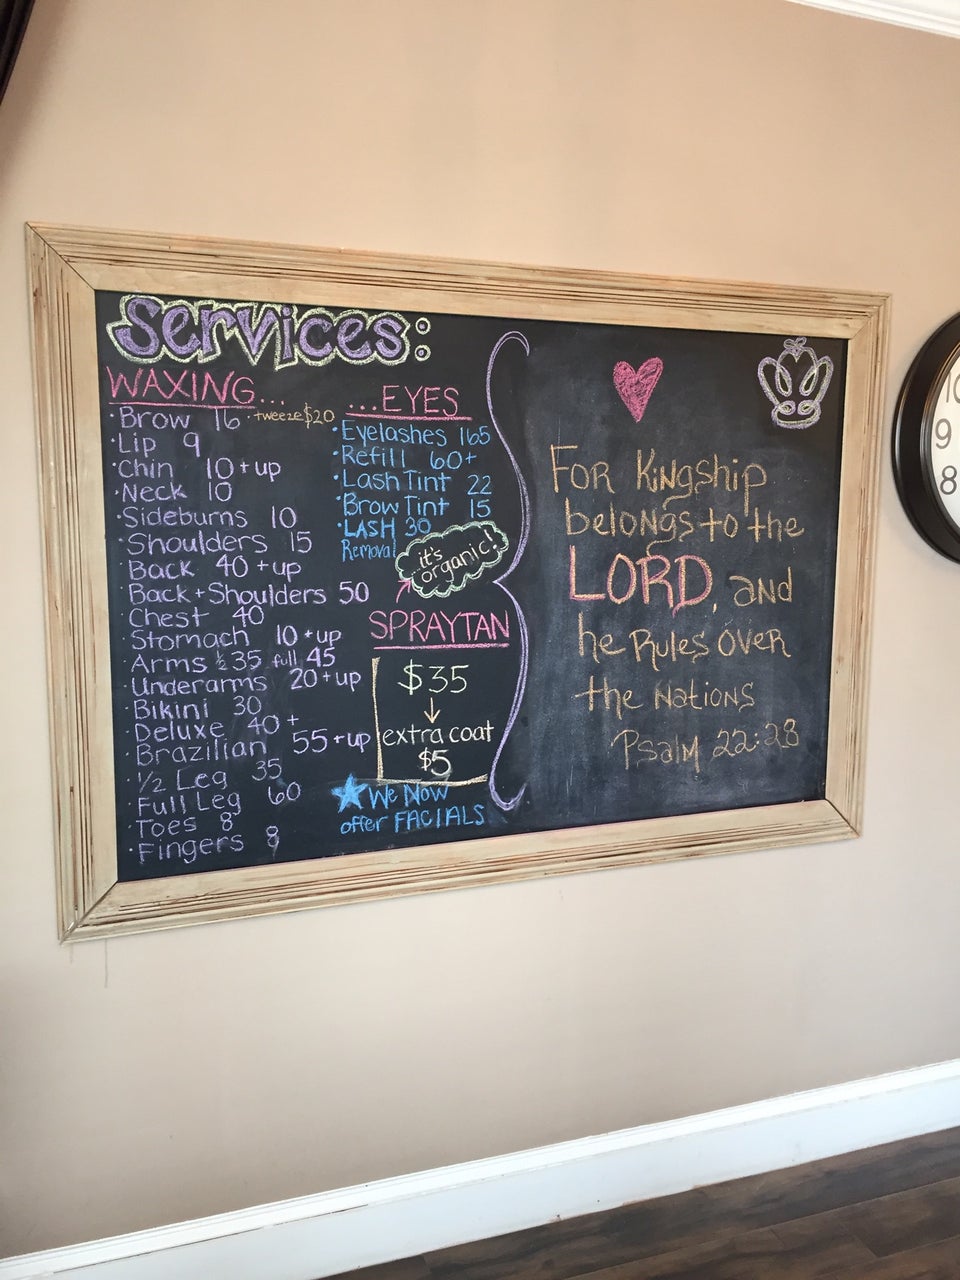 Services:
WAXING...
Brow 16 tweeze $20
Lip 9
Chin 10 + up
Neck 10
Sideburns 10
Shoulders 15
Back 40 + up
Back + Shoulders 50
Chest 40
Stomach 10 + up
Arms ½ 35 full 45
Underarms 20 + up
Bikini 30
Deluxe 40 +
Brazilian 55 + up
½ Leg 35
Full Leg 60
Toes 8
Fingers 8
...EYES
Eyelashes 165
Refill 60+
Lash Tint 22
Brow Tint 15
LASH 30
Removal
it's
organic!
SPRAYTAN
$35
extra coat
$5
We Now
offer FACIALS
FOR Kingship
belongs to the
LORD, and
he Rules over
the Nations
Psalm 22:28
10
9
8